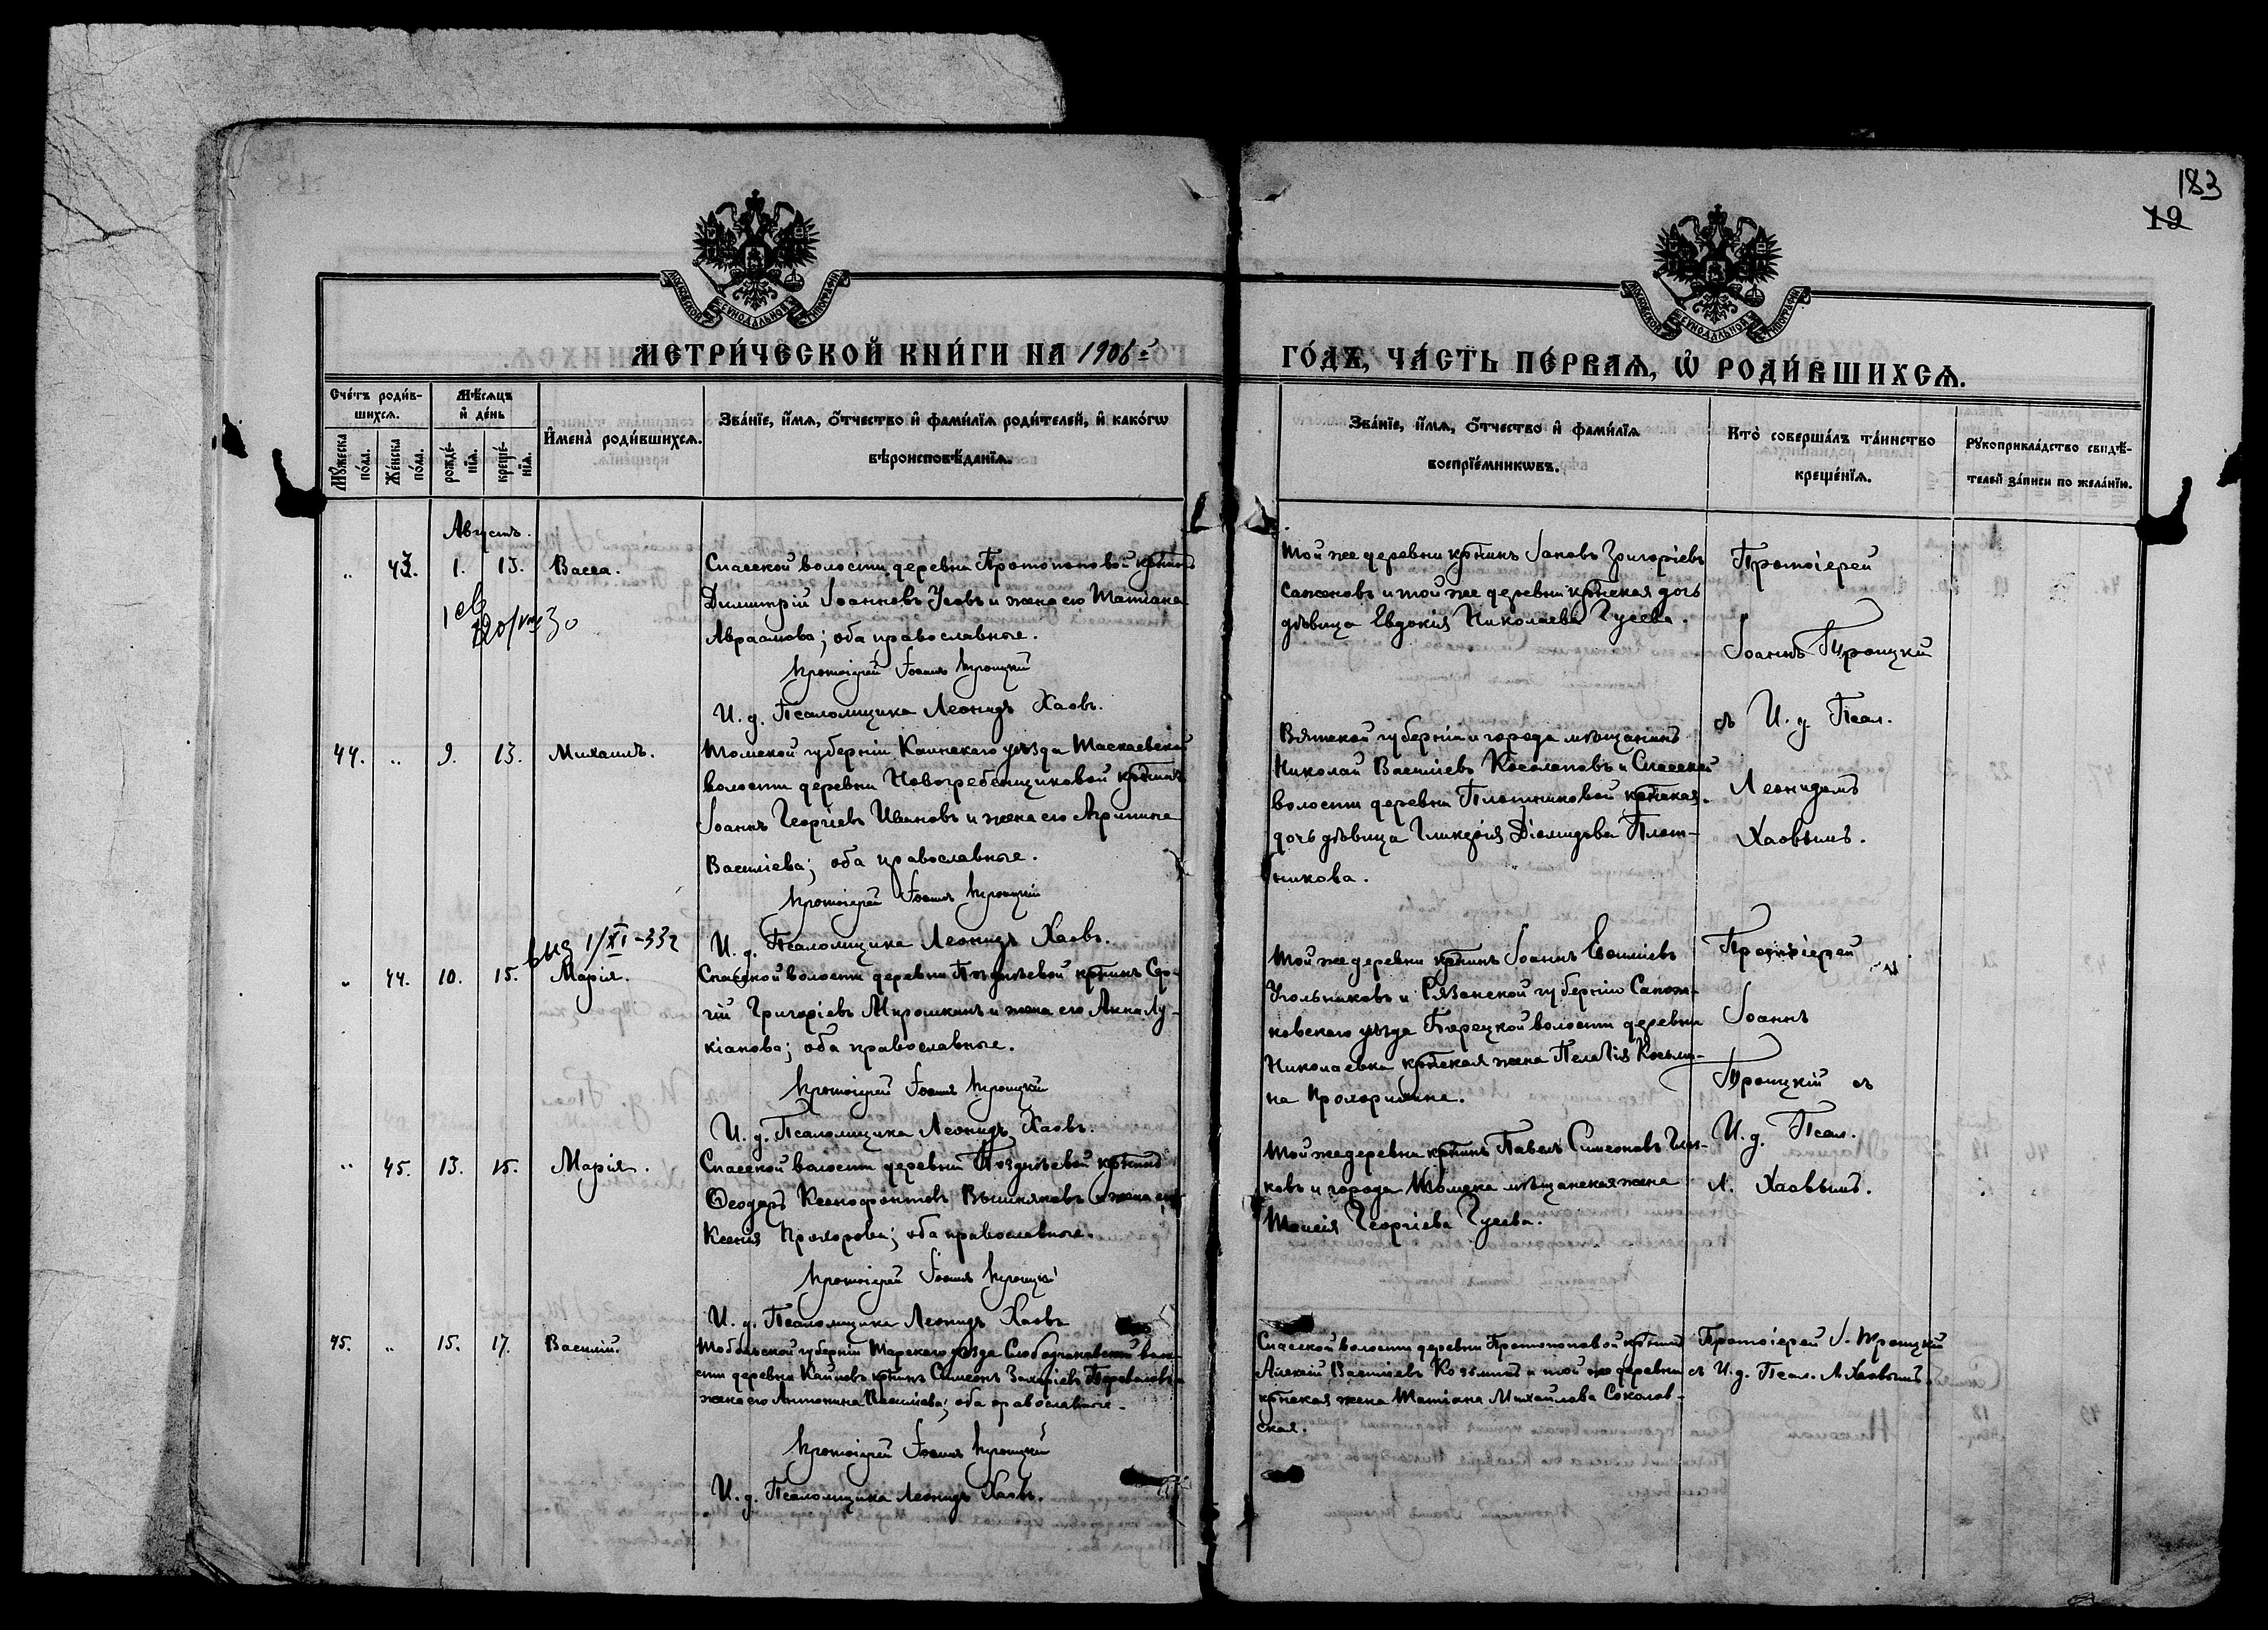 183
19
МОСКОВСКОЙ СѴНОДАЛЬНОЙ ТИПОГРАФІИ
МОСКОВСКОЙ СѴНОДАЛЬНОЙ ТИПОГРАФІИ
МЕТРИ́ЧЕСКОЙ КНИ́ГИ НА 1906й
ГО́ДЪ, ЧА́СТЬ ПЕ́РВАѦ, Ѡ РОДИ́ВШИХСѦ.
Сче́тъ роди́в-
шихсѧ.
Мꙋжеска по́ла.
Же́нска по́ла.
Мѣ́сѧцъ
и҆ де́нь
рожде́-
нїѧ.
креще́-
нїѧ.
И҆мена̀ роди́вшихсѧ.
Зва́нїе, и҆́мѧ, ѻ҆́тчество и҆ фами́лїѧ роди́телей, и҆ како́гѡ
вѣроисповѣ́данїѧ.
Зва́нїе, и҆́мѧ, ѻ҆́тчество и҆ фами́лїѧ
воспрїе́мникѡвъ.
Кто̀ соверша́лъ та́инство
креще́нїѧ.
Рꙋкоприкла́дство свидѣ́-
телей за́писи по жела́нїю.
Августъ.
„ 43. 1. 13. Васса.
Спасской волости деревни Протопоповой кр̃нинъ
Димитрій Іоанновъ Усовъ и жена его Татіана
Авраамова; оба православные.
Протоіерей Іоаннъ Троицкій
И. д. Псаломщика Леонидъ Хаовъ.
Той же деревни кр̃нинъ Іаковъ Григоріевъ
Сажновъ и той же деревни кр̃нская дочь
дѣвица Евдокія Николаева Гусева.
Протоіерей
Іоаннъ Троицкій
съ И. д. Псал.
Леонидомъ
Хаовымъ.
44. „ 9. 13. Михаилъ.
Томской губерніи Каинскаго уѣзда Таскаевской
волости деревни Новогребенщиковой кр̃нинъ
Іоаннъ Георгіевъ Ивановъ и жена его Агрипина
Василіева; оба православные.
Протоіерей Іоаннъ Троицкій
И. д. Псаломщика Леонидъ Хаовъ.
Вятской губерніи и города мѣщанинъ
Николай Василіевъ Косолаповъ и Спасской
волости деревни Плотниковой кр̃нская
дочь дѣвица Гликерія Діомидова Плот-
никова.
1/XI-33г
„ 44. 10. 15. Марія.
Спасской волости деревни Позднѣевой кр̃нинъ Сер-
гій Григоріевъ Мирошкинъ и жена его Анна Лу-
кіанова; оба православные.
Протоіерей Іоаннъ Троицкій
И. д. Псаломщика Леонидъ Хаовъ.
Той же деревни кр̃нинъ Іоаннъ Василіевъ
Угольниковъ и Рязанской губерніи Сапож-
ковскаго уѣзда Борецкой волости деревни
Николаевка кр̃нская жена Пелагія Козьми-
на Прохоришина.
Протоіерей
Іоаннъ
Троицкій съ
И. д. Псал.
Л. Хаовымъ.
„ 45. 13. 15. Марія.
Спасской волости деревни Позднѣевой кр̃нинъ
Ѳеодоръ Ксенофонтовъ Вышняковъ и жена его
Ксенія Прохорова; оба православные.
Протоіерей Іоаннъ Троицкій
И. д. Псаломщика Леонидъ Хаовъ
Той же деревни кр̃нинъ Павелъ Симеоновъ
ковъ и города Томска мѣщанская жена
Таисія Георгіева Гусева.
45. „ 15. 17. Василій.
Тобольской губерніи Тарскаго уѣзда Слободчиковской воло-
сти деревни кр̃нинъ Симеонъ Захаріевъ и
жена его Антонина Василіева; оба православные.
Протоіерей Іоаннъ Троицкій
И. д. Псаломщика Леонидъ Хаовъ.
Спасской волости деревни Протопоповой кр̃нинъ
Алексій Василіевъ Козьминъ и той же деревни
кр̃нская жена Татіана Михайлова Соколов-
ская.
Протоіерей І. Троицкій
съ И. д. Псал. Л. Хаовымъ.